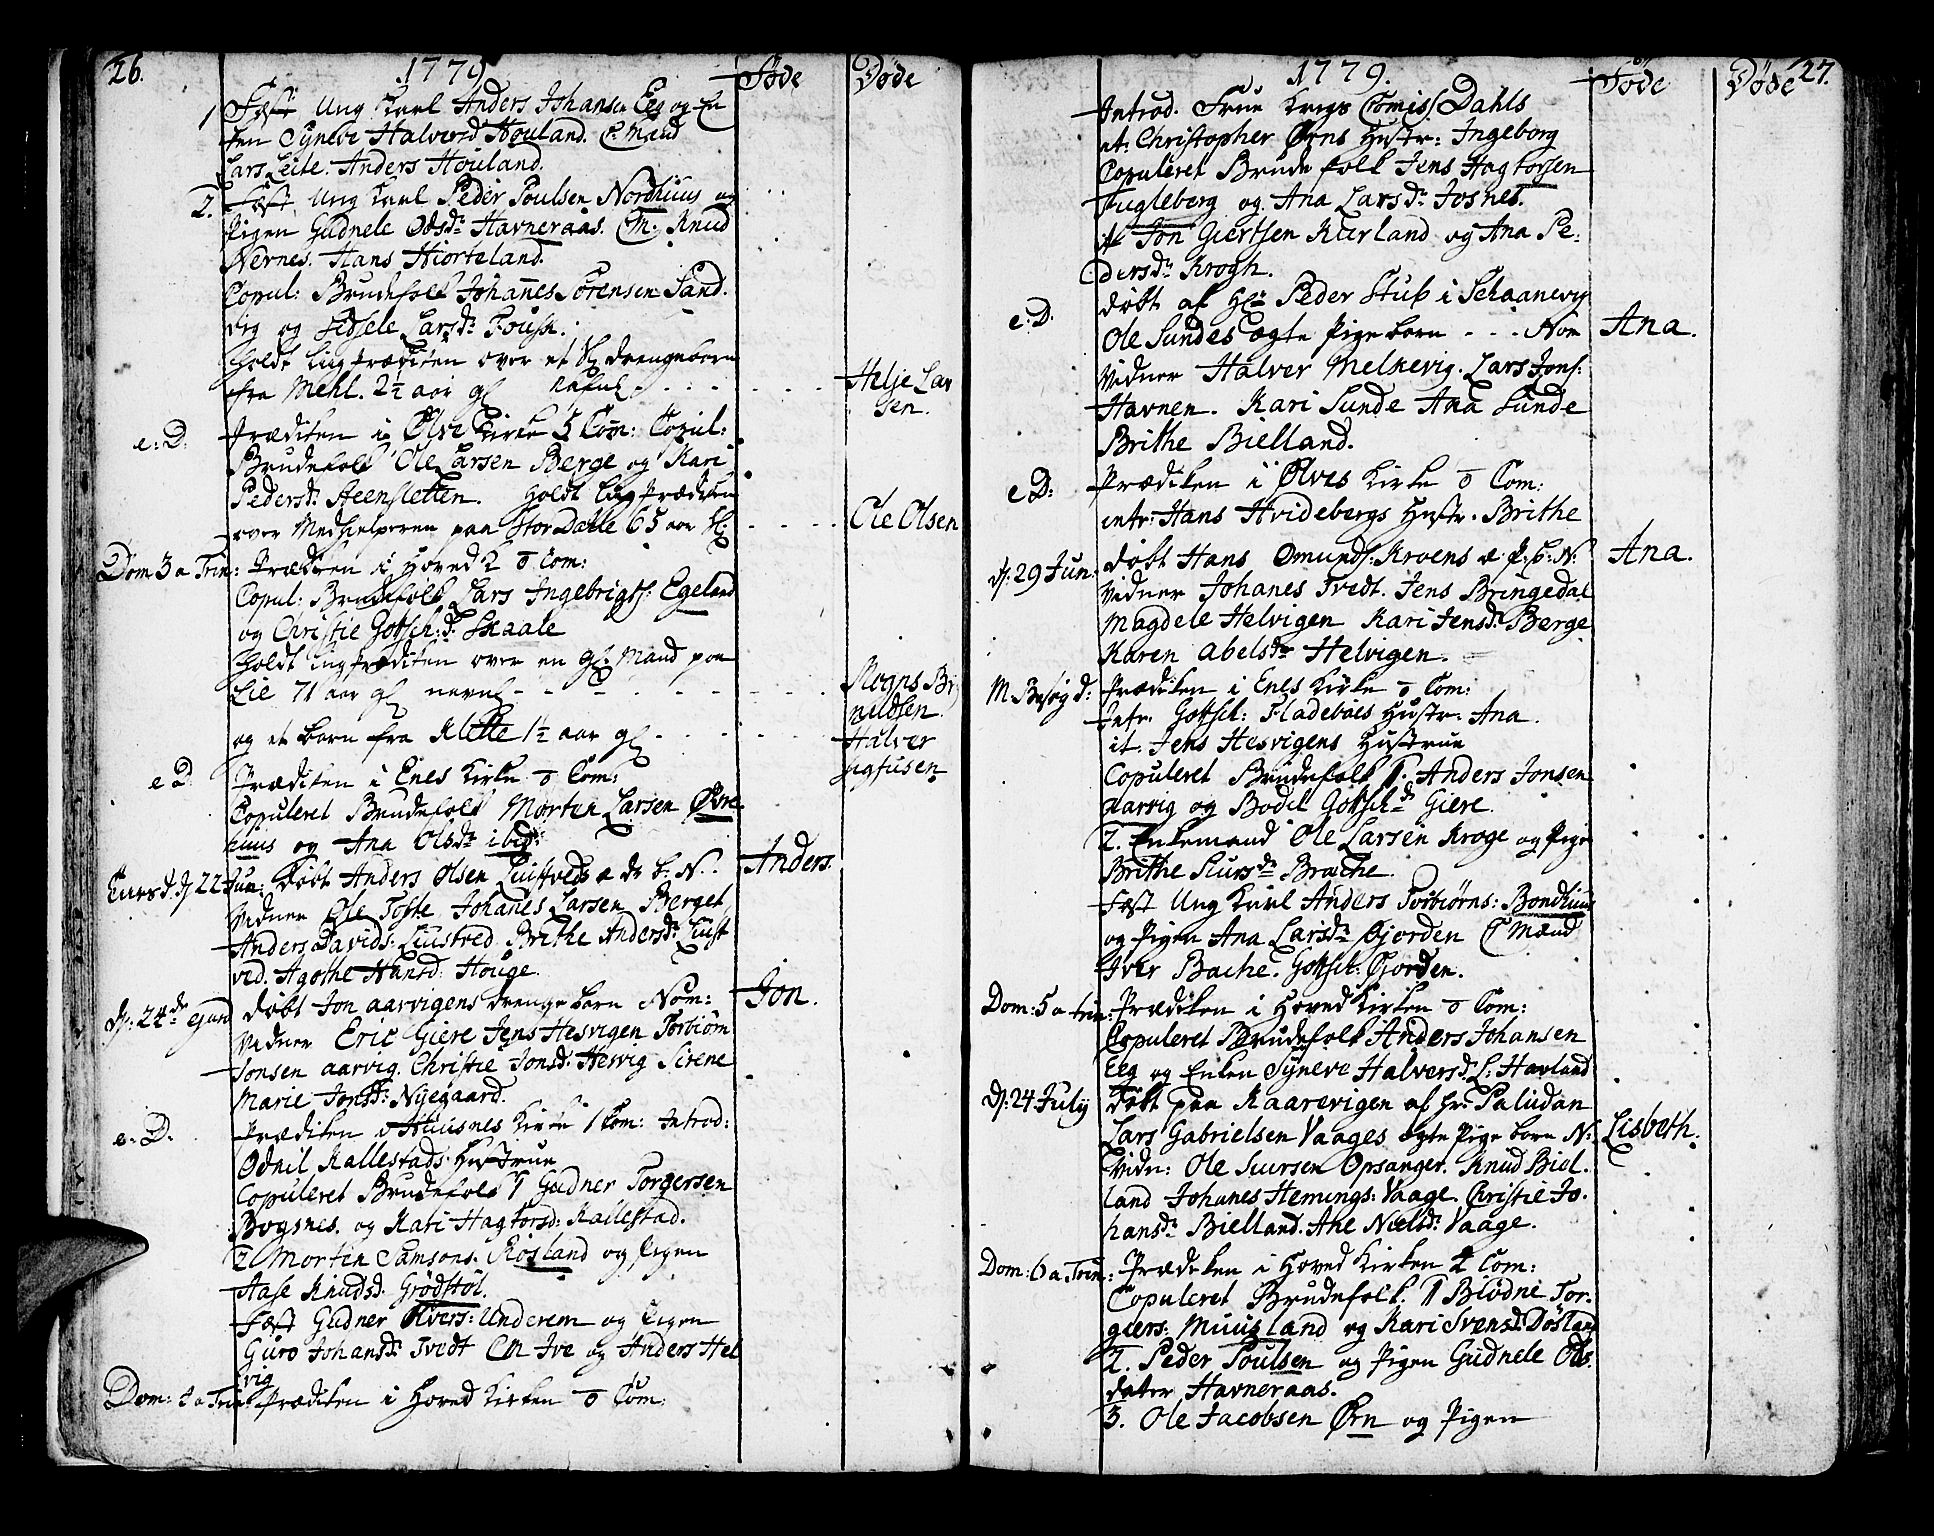 26.
1779
Føde
Døde
1 Fæst Ung Karl Anders Johansen Eeg og En
ken Syneve Halversd Houland. C. Mænd
Lars Leite. Anders Houland.
2. Fæst. Ung Karl Peder Poulsen Nordhuus og
Pigen Gudnele Odsdr Havneraas. C M. Knud
Nernes. Hans Hiorteland.
Copul: Brudefolk Johanes Sørensen Sand.
vig og Sidsele Larsdr
holdt Liigprædiken over et drengebarn
fra Mehl. 2½ aar gl - - - - Helje Lar
sen.
e: D. Prædiken i Ølve Kirke 5 Com: Copul:
Brudefolk Ole Larsen Berge og Kari
Pedersdr Steensletten. holdt Liigprædiken
over Medhielperen paa StorDalle 65 aar gl: - - - - Ole Olsen
Dom 3 a Trin: Prædiken i Hoved K o Com:
Copul: Brudefolk Lars Ingebrigts: Egeland
og Christie Gotsch:dr Skaale
holdt Liigprædiken over en gl: Mand paa
Lie 71 aar gl - - - - Mogns Br
nildsen
og et barn fra Klette 1½ aar gl - - - - Halver
Sigfusen
e D Prædiken i Enes Kirke o Com:
Copuleret Brudefolk Morten Larsen Øvre
huus og Ana Olsdr ibid:
22 Jun: døbt Anders Olsen a d: b: N:. Anders.
Vidner Ole Tofte Johanes Larsen Berget
Anders Davids: Liustved Brithe Andersdr Liust
ved. Agothe Hansd: Houge.
d: 24de døbt Jon aarvigens drengebarn Nom: Jon.
Vidner Eric Giere Jens Hesvigen Torbiørn
Jonsen aarvig. Christie Jonsd: Hesvig Sirene
Marie Jonsd: Nyegaard.
e: D. Prædiken i Huusnes Kirke 1 Com: Introd:
Odnil Kallestads Hustrue
Copuleret Brudefolk 1 Gudner Torgersen
Bogsnes. og Kari Hagtorsd: Kallestad.
2 Morten Samsons. Røsland og Pigen
Aase Knudsd. Grødstøl.
Fæst Gudner Olvers: Underem og Pigen
Guro Johansdr Tvedt C M Ive og Anders Hel
vig
Dom: 4 a Trin: Prædiken i Hoved Kirken o Com:
1779.
Føde
Døde
27.
Introd. Frue Krigs Comiss Dahls
it: Christopher Ørns Hustr: Ingeborg
Copuleret Brudefolk Jens Hagtorsen
Fugleberg og Ana Larsdr Josnes.
it Jon Giertsen Kurland og Ana Pe:
dersdr Krogh.
e: D. døbt af Hr: Peder Stub i Schaanevig
Ole Sundes ægte Pigebarn - - - Nom Ana.
Vidner Halver Melkevig. Lars Jons:
Havnen. Kari Sunde Ana Sunde
Brithe Bielland.
e D: Prædiken i Ølves Kirke o Com:
intr: Hans Hvidebergs Hustr. Brithe
d: 29 Jun: døbt Hans Omunds: Kroens æ. P: b: N: Ana.
Vidner Johanes Tvedt. Jens Bringedal
Magdele Helvigen Kari Jensd: Berge
Karen Abelsdr Helvigen.
M Besøg d: Prædiken i Enes Kirke o Com:
Intr. Gotsch: Fladebøes Hustr: Ana.
it. Jens Hesvigens Hustrue
Copuleret Brudefolk 1. Anders Jonsen
aarvig og Bodil Gotschdr Giere.
2. Enkemand Ole Larsen Kroge og Pigen
Brithe Siursdr Brache.
Fæst Ung Karl Anders Torbiørns: Bondhuus
og Pigen Ana Larsdr Fjorden C Mænd
Iver Bache. Gotsch: Fjorden.
Dom: 5 a Trin: Prædiken i Hoved Kirken o Com:
Copuleret Brudefolk Anders Johansen
Eeg og Enken Syneve Halversd: L: Havland
d: 24 July døbt paa Kaarevigen af Hr. Paludan
Lars Gabrielsen Vaages ægte Pigebarn N: Lisbeth.
Vidn: Ole Siursen Opsanger. Knud Biel.
land Johanes Hemings: Vaage. Christie Jo.
hansdr Bielland. Ane Nielsdr Vaage.
Dom: 6 a Trin: Prædiken i Hoved Kirken 2 Com:
Copuleret Brudefolk. 1 Blødne Tor.
giers. Muusland og Kari Svensd. Døsland
2. Peder Poulsen og Pigen Gudnele Ods.
dater Havneraas.
3. Ole Jacobsen Ørn og Pigen